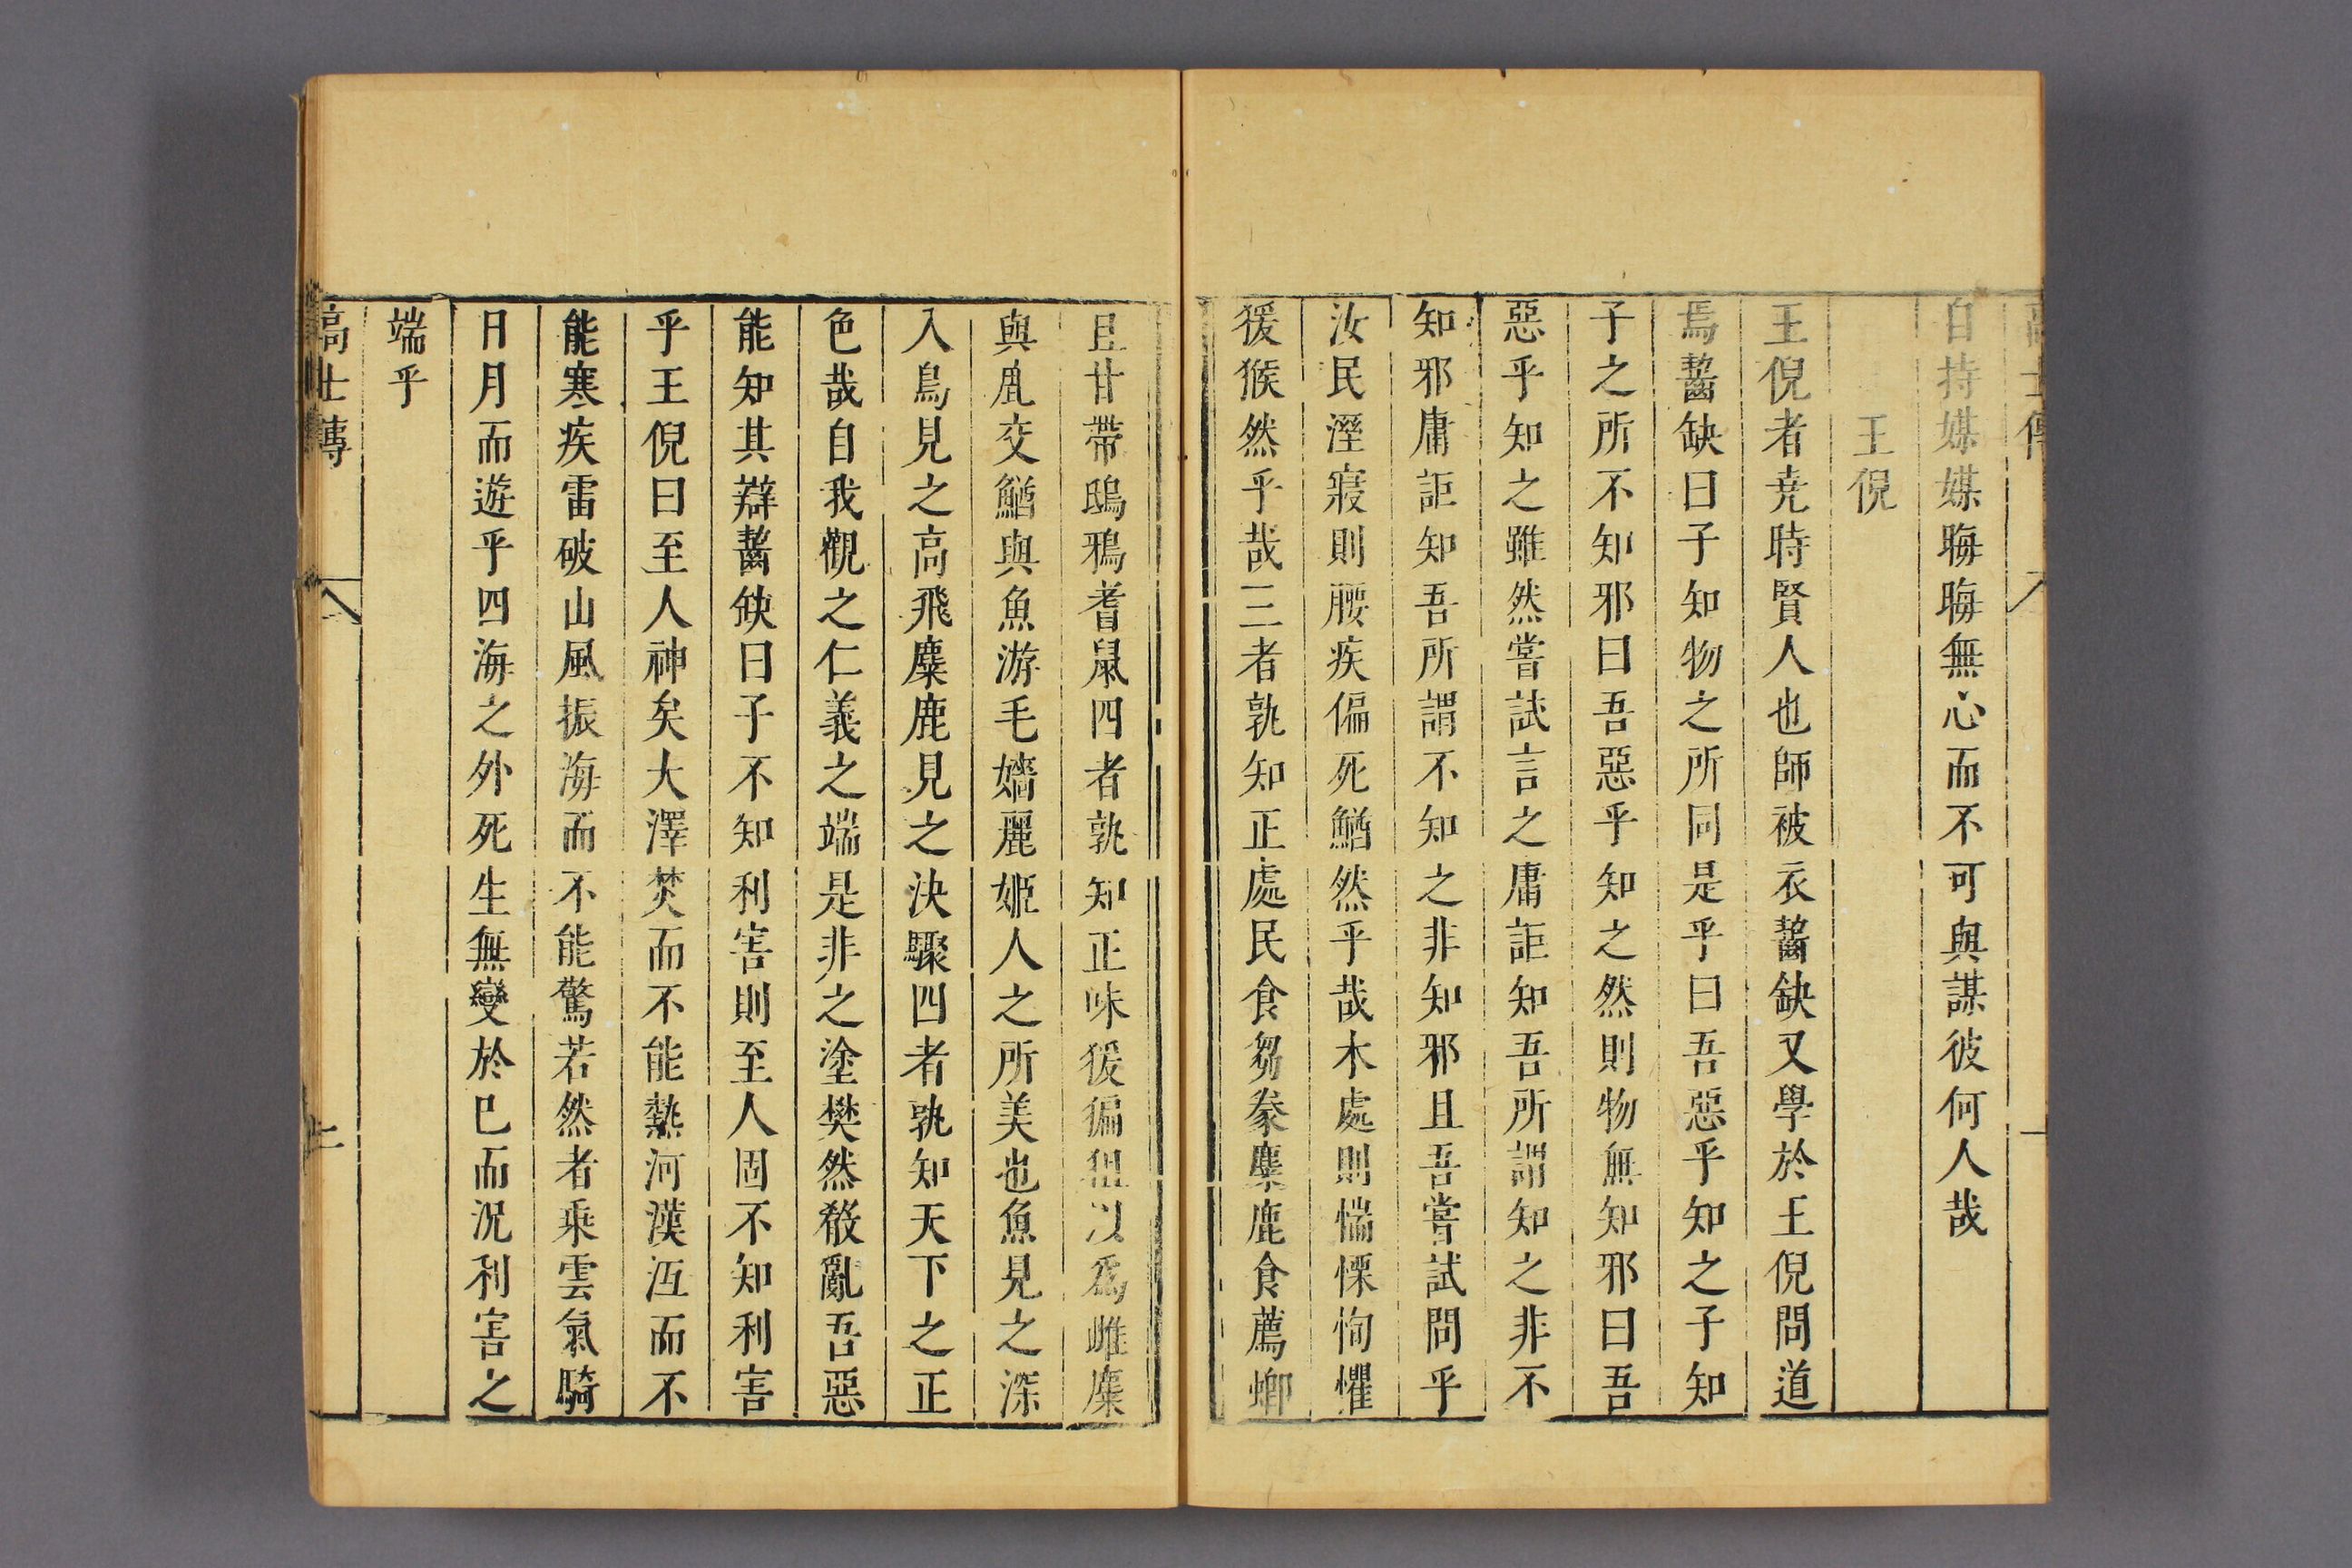 高士傳 一
自持媒媒晦晦無心而不可與謀彼何人哉
王倪
王倪者堯時賢人也師被衣齧缺又學於王倪問道
焉齧缺曰子知物之所同是乎曰吾惡乎知之子知
子之所不知邪曰吾惡乎知之然則物無知邪曰吾
惡乎知之雖然嘗試言之庸詎知吾所謂知之非不
知邪庸詎知吾所謂不知之非知邪且吾嘗試問乎
汝民溼寢則腰疾偏死鰌然乎哉木處則惴慄恂懼
猨猴然乎哉三者孰知正處民食芻豢麋鹿食薦螂
且甘帶鴟鴉耆鼠四者孰知正味猨猵狙以為雌麋
與鹿交鰌與魚游毛嬙麗姬人之所美也魚見之深
入鳥見之高飛麋鹿見之決驟四者孰知天下之正
色哉自我觀之仁義之端是非之塗樊然殽亂吾惡
能知其辯齧缺曰子不知利害則至人固不知利害
乎王倪曰至人神矣大澤焚而不能熱河漢沍而不
能寒疾雷破山風振海而不能驚若然者乘雲氣騎
日月而遊乎四海之外死生無變於己而況利害之
端乎
高士傳 上